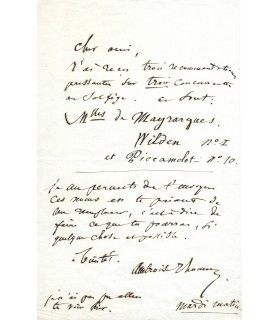 Cher ami,
J'ai reçu trois recommandations
pressantes sur trois concurrentes
au Solfège. ce sont:
Mlles de Mayrargues.
Wilden No I
et Piccamolot No 10.
je me permets de t'envoyer
ces noms en te priant de
me
faire ce que tu pourras, si
quelque chose est possible.
à toi
Ambroise Thomas
mardi matin
je n'ai pas pu aller
te voir hier.